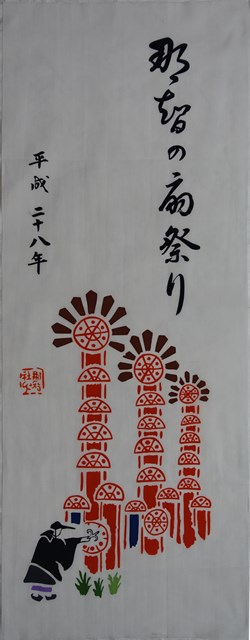 那智の扇祭り
平成二十八年